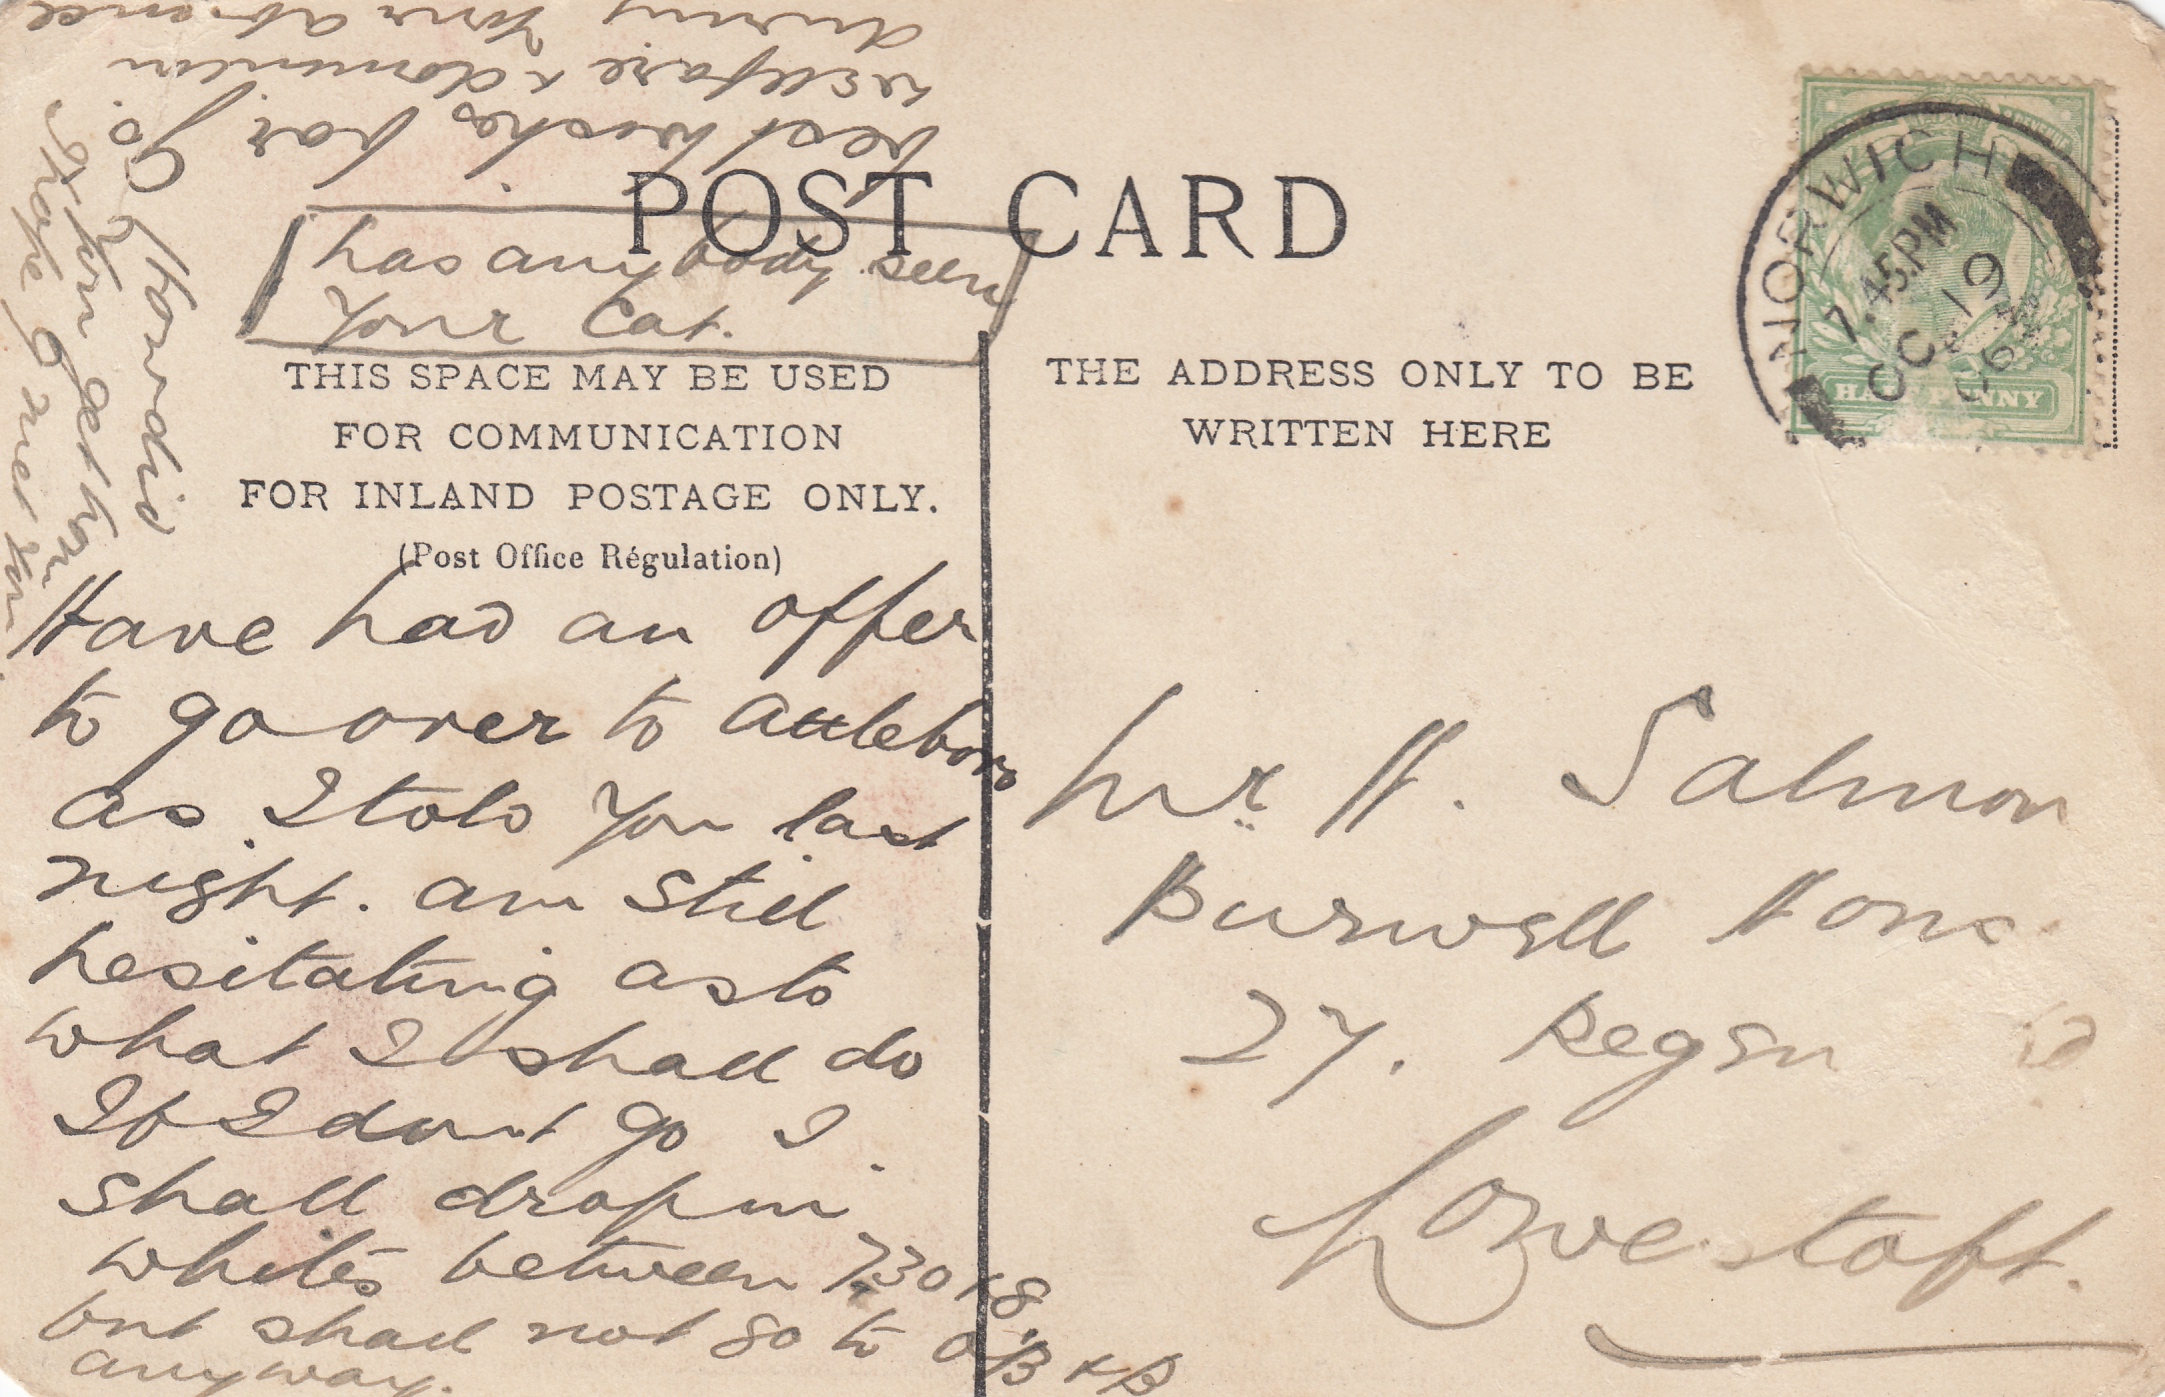 POST CARD
THIS SPACE MAY BE USED
FOR COMMUNICATION
FOR INLAND POSTAGE ONLY.
(Post Office Régulation)
THE ADDRESS ONLY TO BE
WRITTEN HERE
NORWICH
7.45PM
OC 19
06
HALFPENNY
Mr H. Salmon
Burwell House
27. Regen
Lowestoft.
Have had an offer
to go over to Attleboro
as I told you last
night. am still
hesitating as to
what I shall do
If I dont go I
shall drop in
whites between 7.30 & 8
but shall not go to
anyway.
hope
you get home
best wishes for Jo.
welfare &
during your absence
has anybody seen
your Cat.